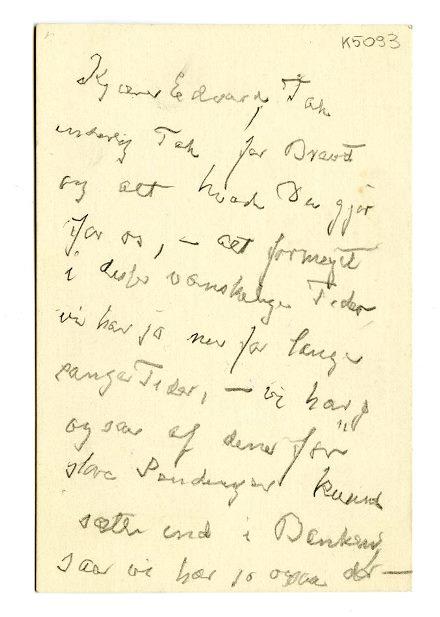 K5093
Kjære Edvard, Tak
inderlig Tak, for Brevet
og alt hvad Du gjør
for os, — alt formeget
i disse vanskelige Tider
vi har jo nu for lange
lange Tider, — vi har jo
ogsaa af denne for
store Sendinger kunnet
sætte ind i Banken,
saa vi har jo ogsaa det —